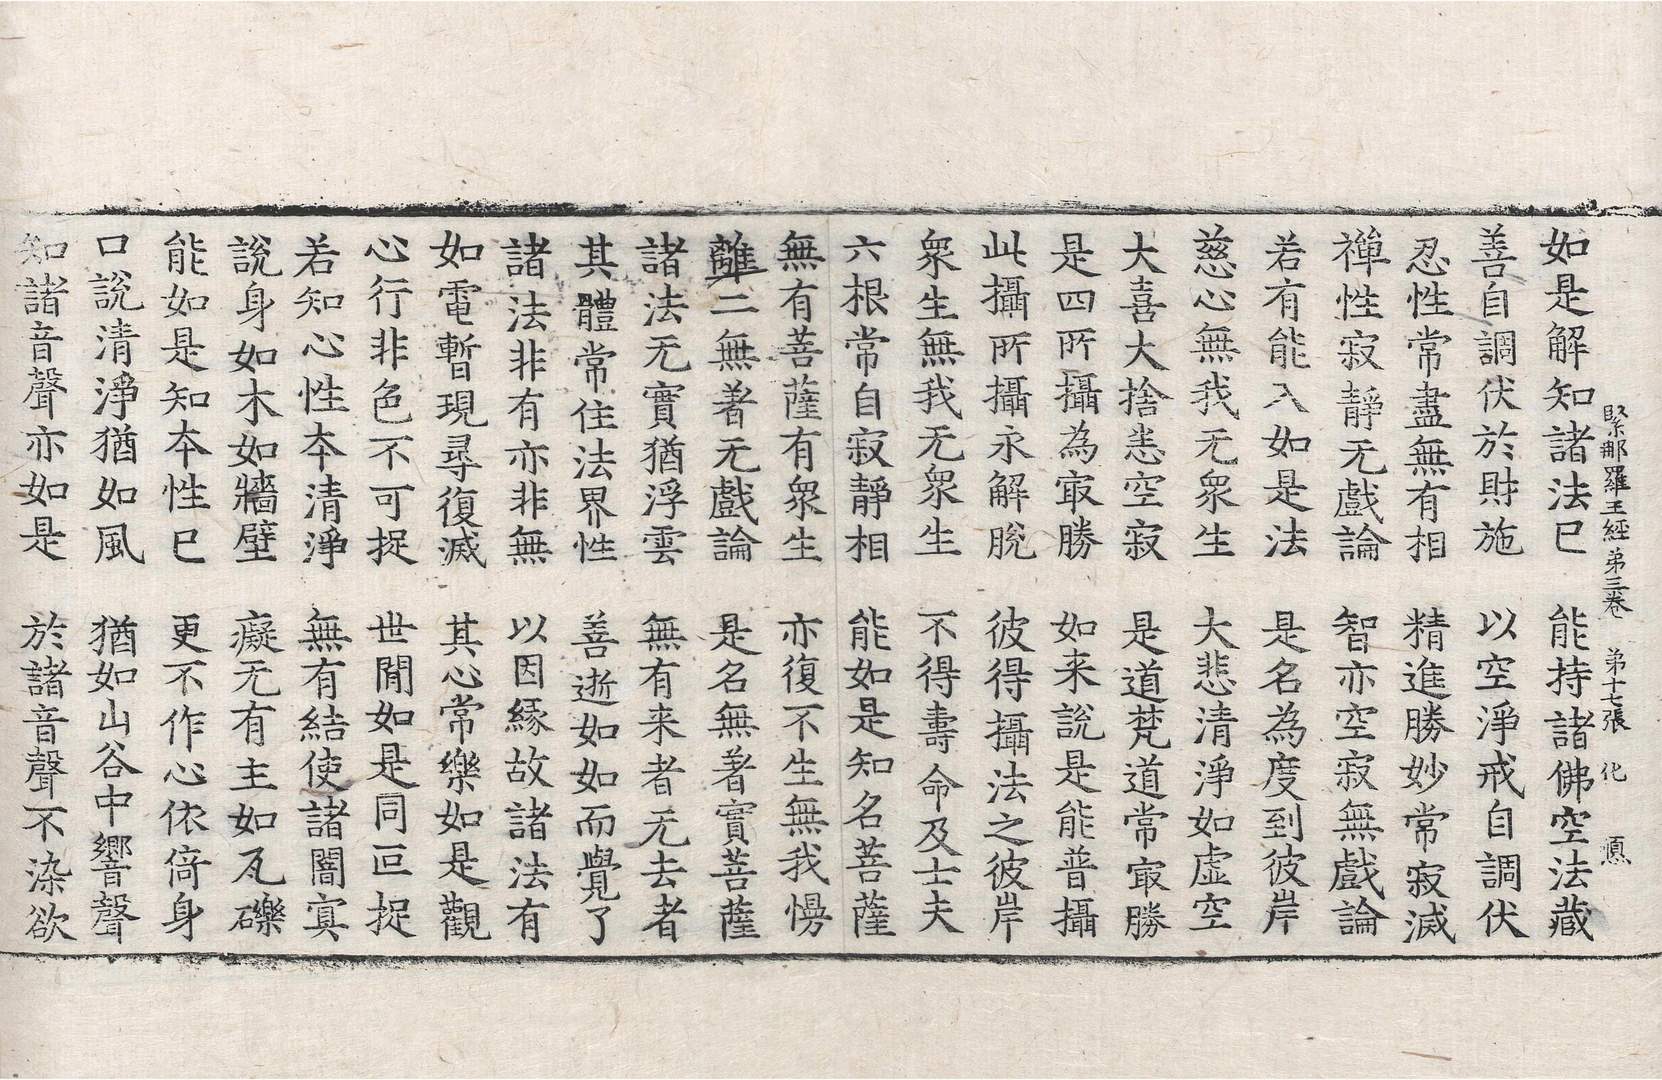 緊那羅王經第三卷　第十七張　化
如是解知諸法已　能持諸佛空法藏
善自調伏於財施　以空淨戒自調伏
忍性常盡無有相　精進勝妙常寂滅
禪性寂靜无戲論　智亦空寂無戲論
若有能入如是法　是名為度到彼岸
慈心無我无衆生　大悲清淨如虛空
大喜大捨恙空寂　是道梵道常㝡勝
是四所攝為㝡勝　如来說是能普攝
此攝所攝永解脫　彼得攝法之彼岸
衆生無我无衆生　不得壽命及士夫
六根常自寂靜相　能如是知名菩薩
無有菩薩有衆生　亦復不生無我慢
離二無著无戲論　是名無著實菩薩
諸法无實猶浮雲　無有来者无去者
其體常住法界性　善逝如如而覺了
諸法非有亦非無　以因緣故諸法有
如電暫現尋復滅　其心常樂如是觀
心行非色不可捉　世間如是同叵捉
若知心性本清淨　無有結使諸闇寘
說身如木如牆壁　癡无有主如瓦礫
能如是知本性已　更不作心依倚身
口說清淨猶如風　猶如山谷中響聲
知諸音聲亦如是　於諸音聲不染欲